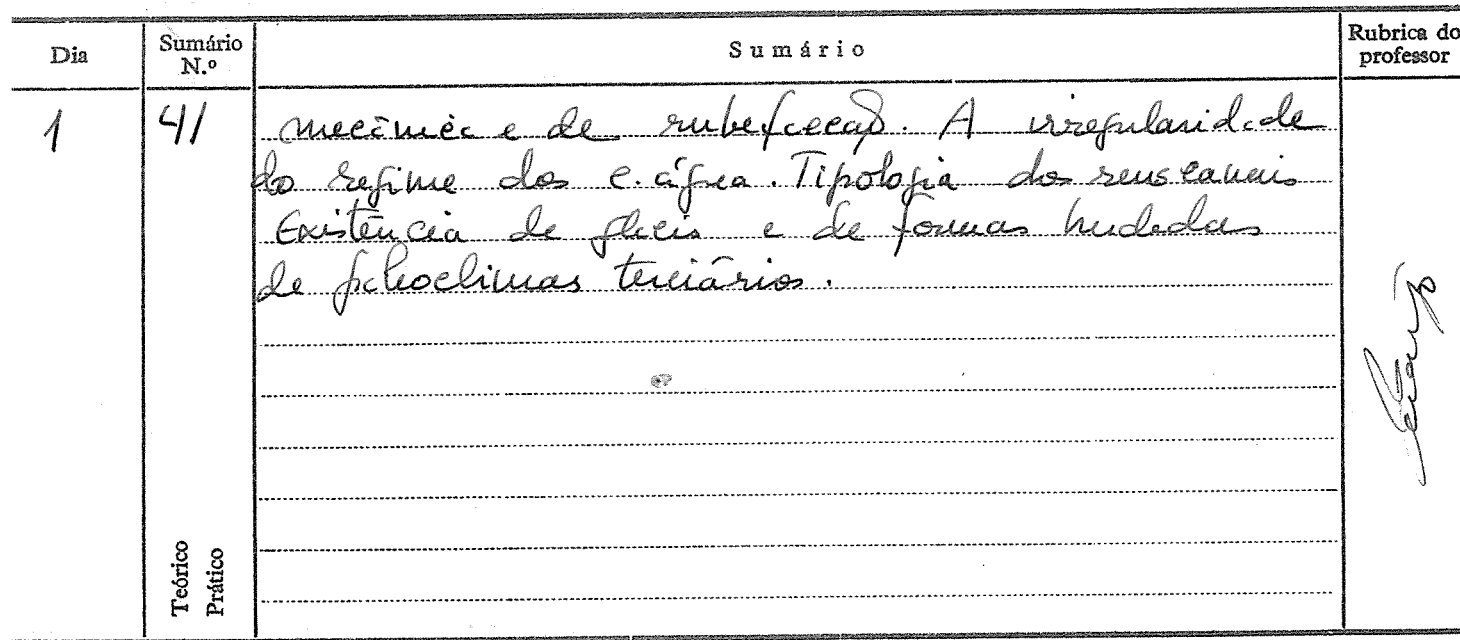 Dia
Sumário N.º
Sumário
Rubrica do professor
1
41
mecânica e de rubefacção. A irregularidade
do regime dos c. água. Tipologia dos seus canais
Existência de glacis e de formas herdadas
de paleoclimas terciários.
Teórico
Prático